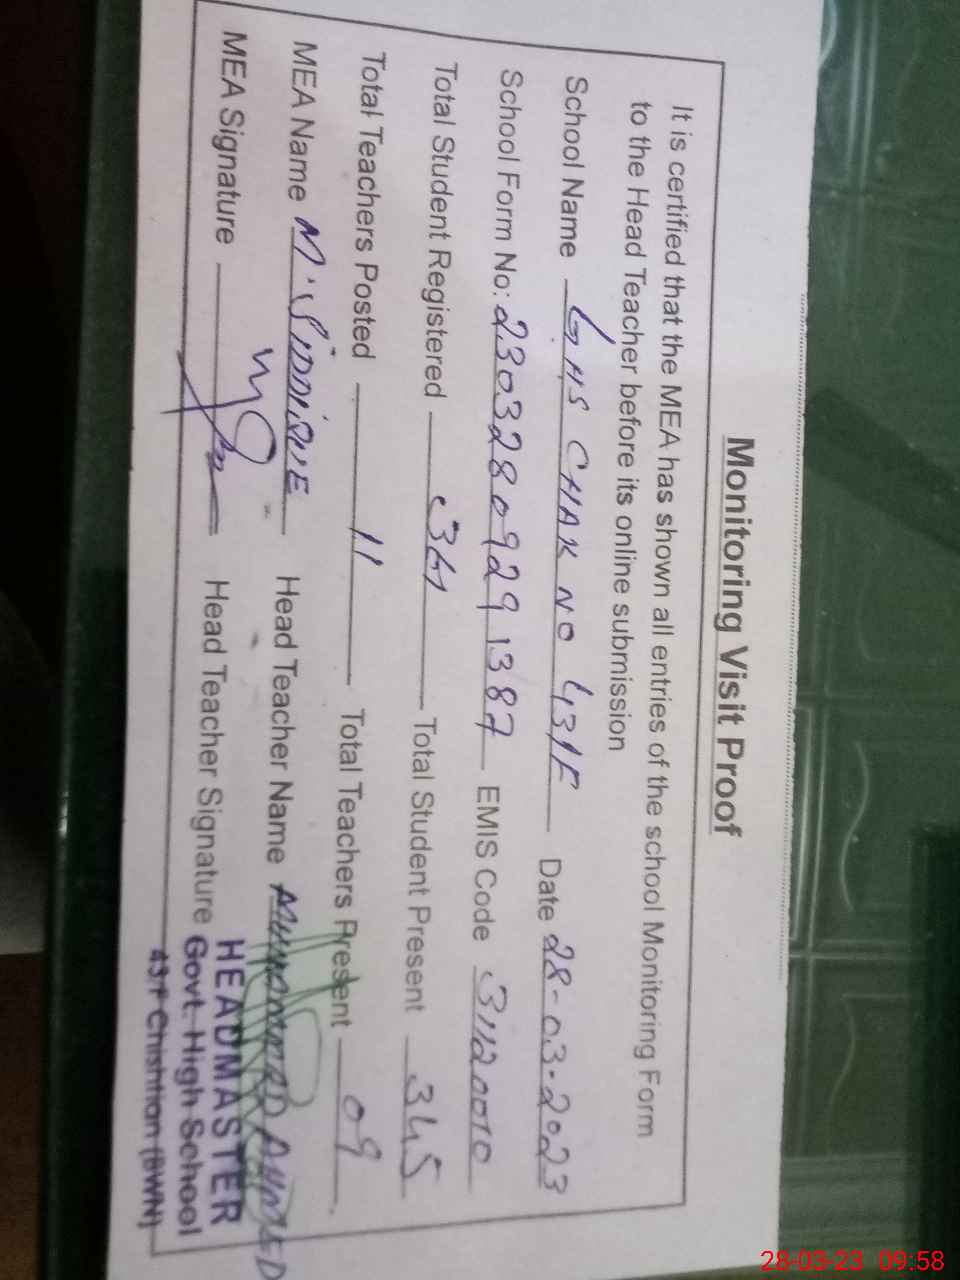 Monitoring Visit Proof
It is certified that the MEA has shown all entries of the school Monitoring Form
to the Head Teacher before its online submission
School Name GHS CHAK NO 43/F Date 28-03-2023
School Form No: 23032809291387 EMIS Code 31120010
Total Student Registered Total Student Present 345
Total Teachers Posted 11 Total Teachers Present 09
MEA Name M. SIDDIQUE Head Teacher Name MUHAMMAD AHMED
MEA Signature Head Teacher Signature
HEADMASTER
Govt. High School
43/F Chishtian (BWN)
28-03-23 09:58